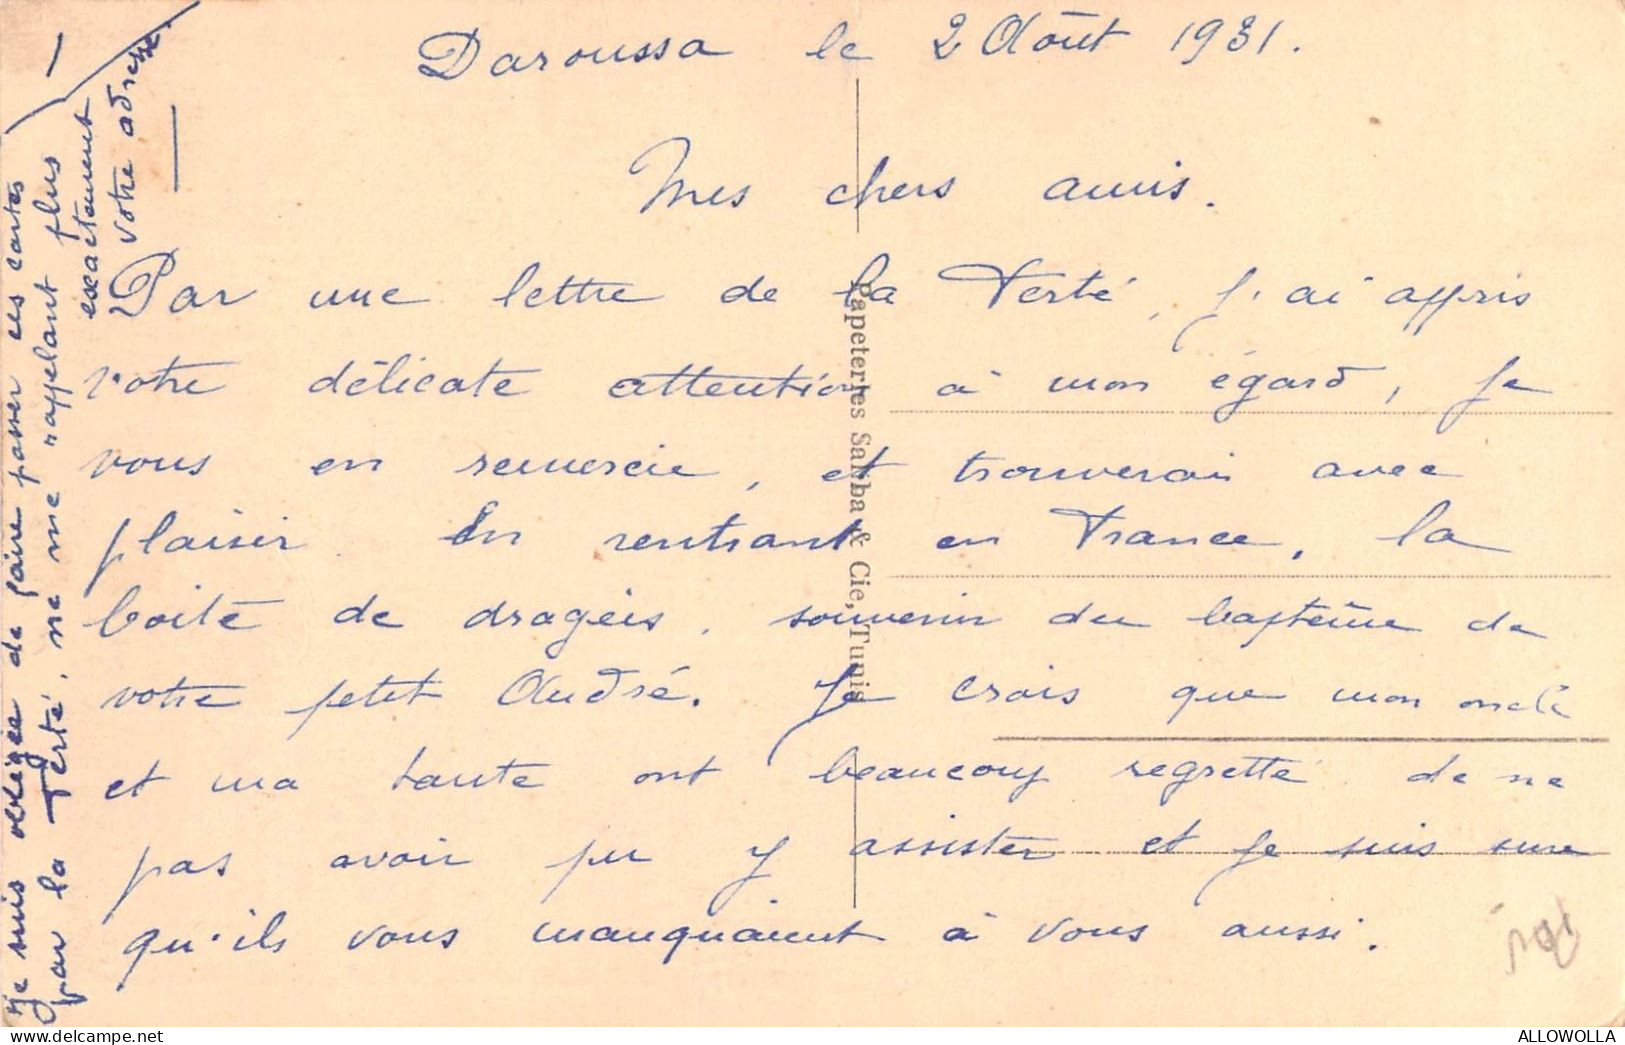 Daroussa le 2 Août 1931.
Mes chers amis.
Par une lettre de la Ferté, j'ai appris
votre délicate attention à mon égard, je
vous en remercie, et trouverai avec
plaisir en rentrant en France, la
boite de dragées, souvenir du baptême de
votre petit André. Je crois que mon oncle
et ma tante ont beaucoup regretté de ne
pas avoir pu y assister et je suis sure
qu'ils vous manquaient à vous aussi.
Je suis obligée de faire passer ces cartes
par la Ferté, ne me rappelant plus
exactement
votre adresse.
Papeteries Saliba & Cie, Tunis
ALLOWOLLA